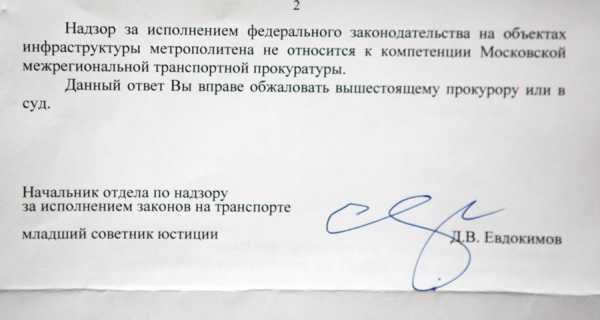 2
Надзор за исполнением федерального законодательства на объектах
инфраструктуры метрополитена не относится к компетенции Московской
межрегиональной транспортной прокуратуры.
Данный ответ Вы вправе обжаловать вышестоящему прокурору или в
суд.
Начальник отдела по надзору
за исполнением законов на транспорте
младший советник юстиции
Д.В. Евдокимов